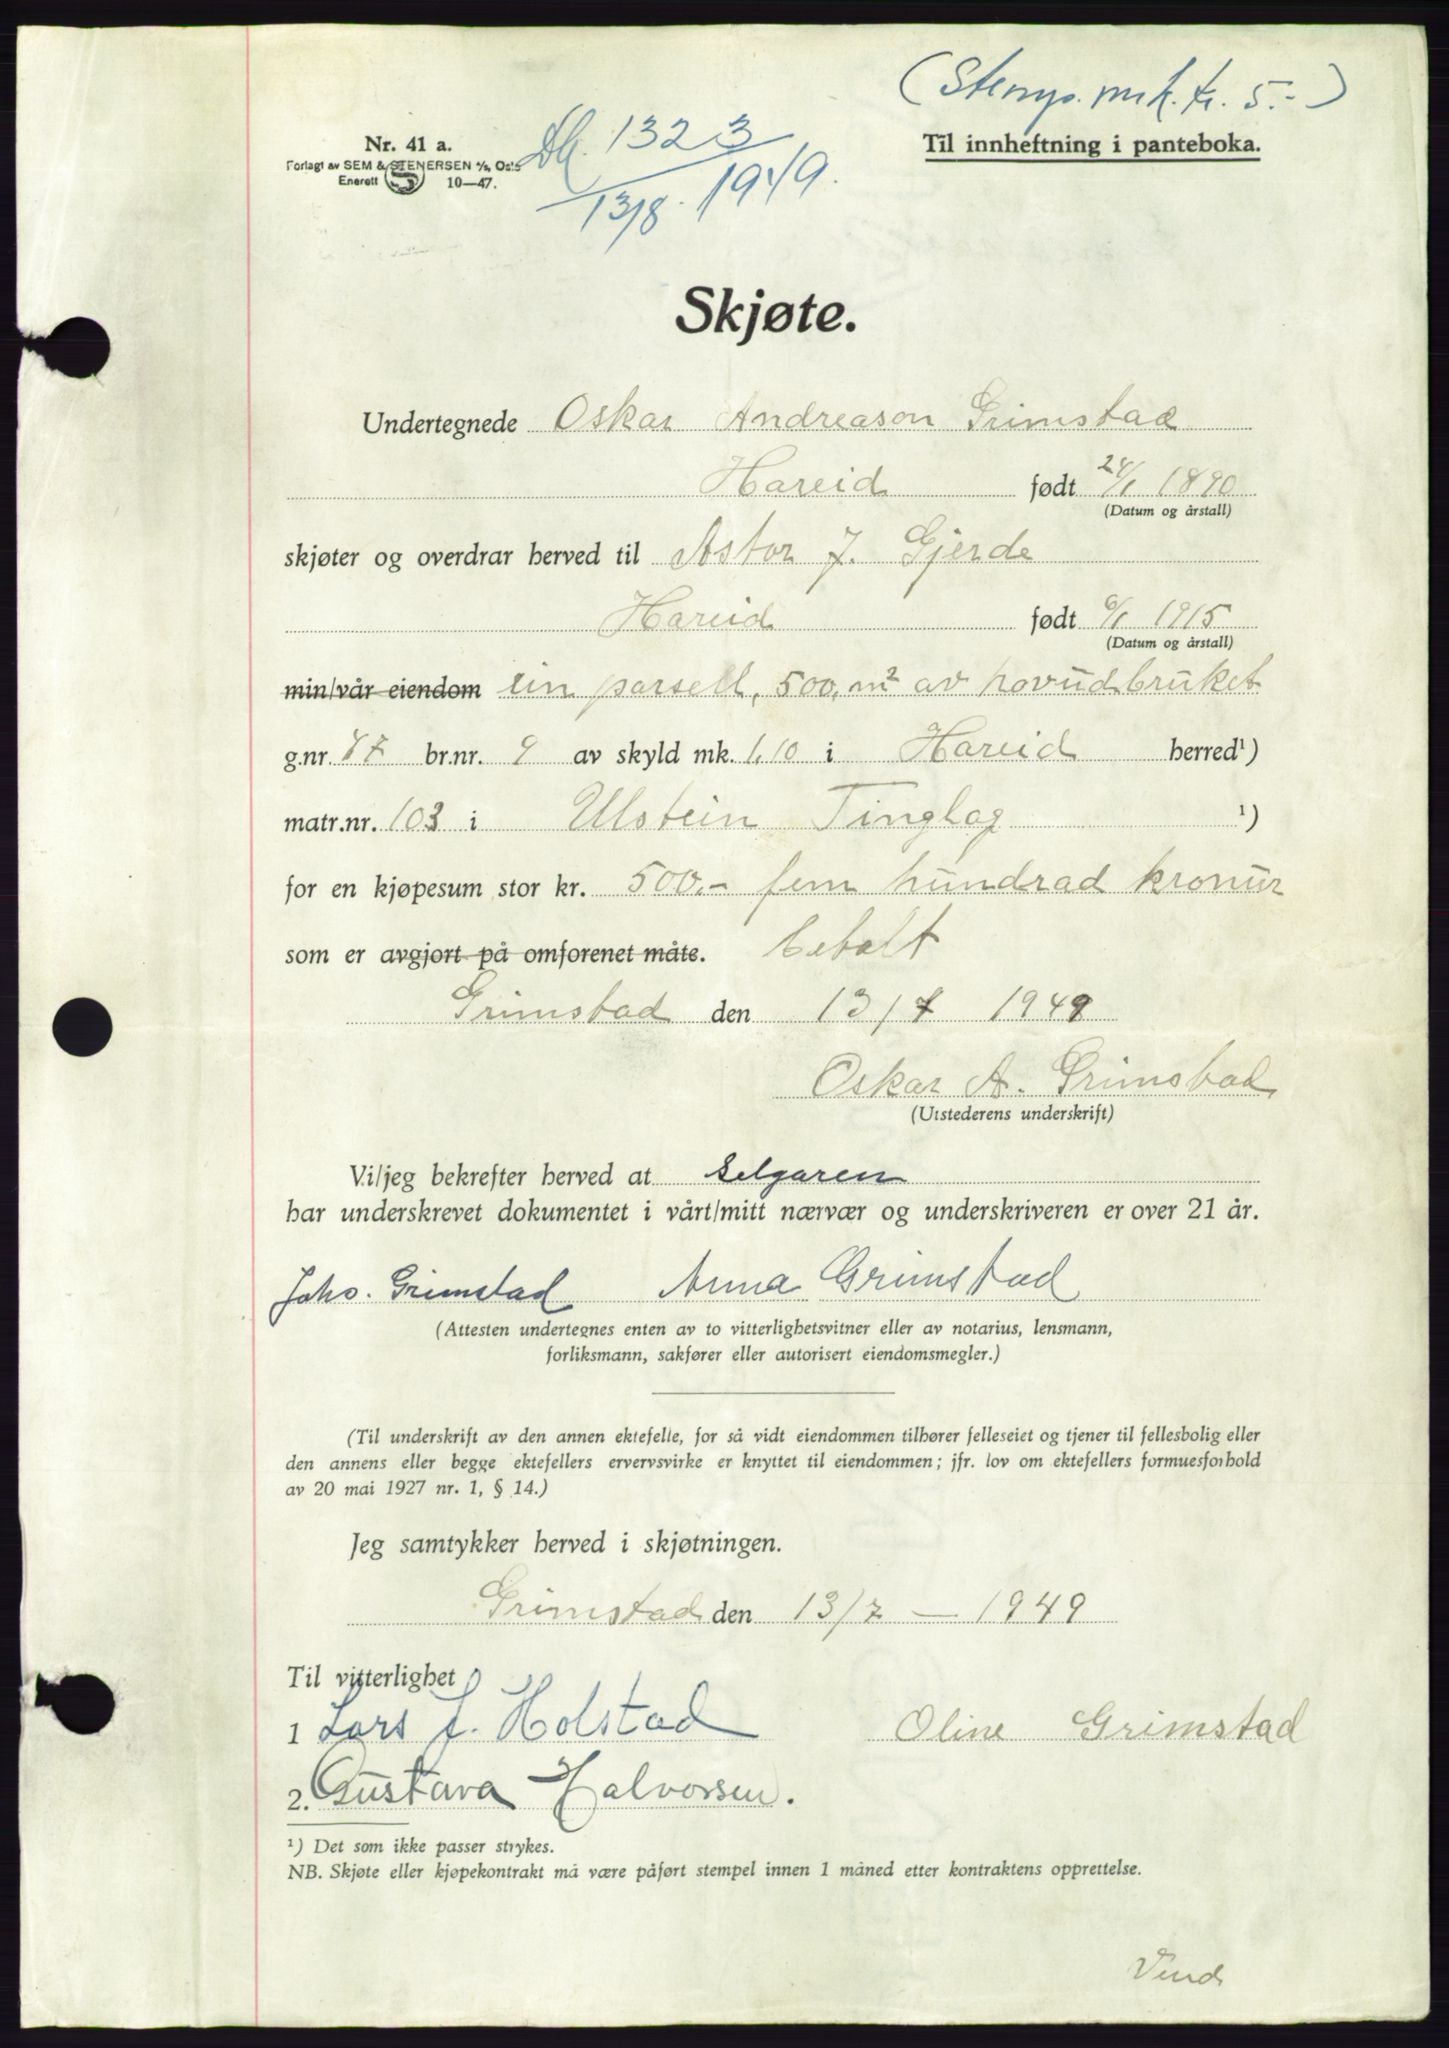 (Stemp. mrk. kr. 5.-)
Til innheftning i panteboka.
Nr. 41 a.
Forlagt av SEM & STENERSEN A/S, Oslo
Enerett 10—47.
Db. 1323
13/8. 1949.
Skjøte.
Undertegnede Oskar Andreason Grimstad
Hareid født 24/1 1890
(Datum og årstall)
skjøter og overdrar herved til Astor J. Gjerde
Hareid født 6/1 1915
(Datum og årstall)
min/vår eiendom ein parsell, 500, m² av hovudbruket
g.nr. 47 br.nr. 9 av skyld mk. 1,10 i Hareid herred¹)
matr.nr. 103 i Ulstein Tinglag ¹)
for en kjøpesum stor kr. 500.- fem hundrad kronur
som er avgjort på omforenet måte. betalt
Grimstad den 13/7 1949
Oskar A. Grimstad
(Utstederens underskrift)
Vi/jeg bekrefter herved at selgaren
har underskrevet dokumentet i vårt/mitt nærvær og underskriveren er over 21 år.
Johs. Grimstad Anna Grimstad
(Attesten undertegnes enten av to vitterlighetsvitner eller av notarius, lensmann,
forliksmann, sakfører eller autorisert eiendomsmegler.)
(Til underskrift av den annen ektefelle, for så vidt eiendommen tilhører felleseiet og tjener til fellesbolig eller
den annens eller begge ektefellers ervervsvirke er knyttet til eiendommen; jfr. lov om ektefellers formuesforhold
av 20 mai 1927 nr. 1, § 14.)
Jeg samtykker herved i skjøtningen.
Grimstad den 13/7 — 1949
Til vitterlighet
1 Lars J. Holstad Oline Grimstad
2. Gustava Halvorsen.
¹) Det som ikke passer strykes.
NB. Skjøte eller kjøpekontrakt må være påført stempel innen 1 måned etter kontraktens opprettelse.
Vend